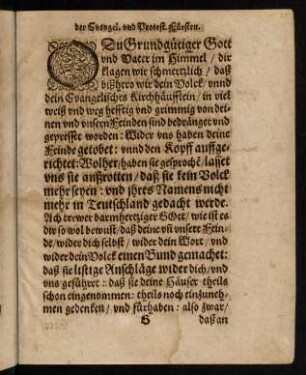 der Evangel. vnd Protest. Fürsten.
O Du Grundgütiger Gott
vnd Vater im Himmel / dir
klagen wir schmertzlich / daß
bißhero wir dein Volck / vnnd
dein Evangelisches Kirchhäufflein / in viel
weiß vnd weg hefftig vnd grimmig von dei-
nen vnd vnsern Feinden sind bedränget vnd
gepresset worden: Wider vns haben deine
Feinde getobet: vnnd den Kopff auffge-
richtet: Wolher / haben sie gesprochē / lasset
vns sie außrotten / daß sie kein Volck
mehr seyen: vnd ihres Namens nicht
mehr in Teutschland gedacht werde.
Ach trewer barmhertziger GOtt / wie ist es
dir so wol bewust / daß deine vñ vnsere Fein-
de / wider dich selbst / wider dein Wort / vnd
wider dein Volck einen Bund gemachet:
daß sie listige Anschläge wider dich / vnd
vns geführet: daß sie deine Häuser theils
schon eingenommen: theils noch einzuneh-
men gedencken / vnd fürhaben: also zwar /
G daß an